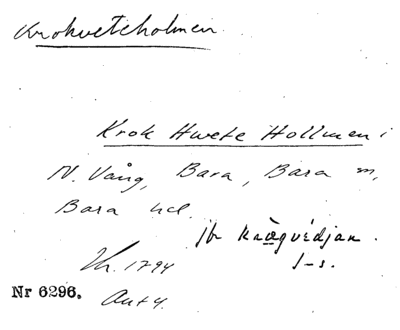 Krokveteholmen
Krok Hwete Hollmen i
N. Vång, Bara, Bara sn,
Bara hd.
jfr kråqvédjan.
f-s.
Kr. 1794
Nr 6296. Ant 4.